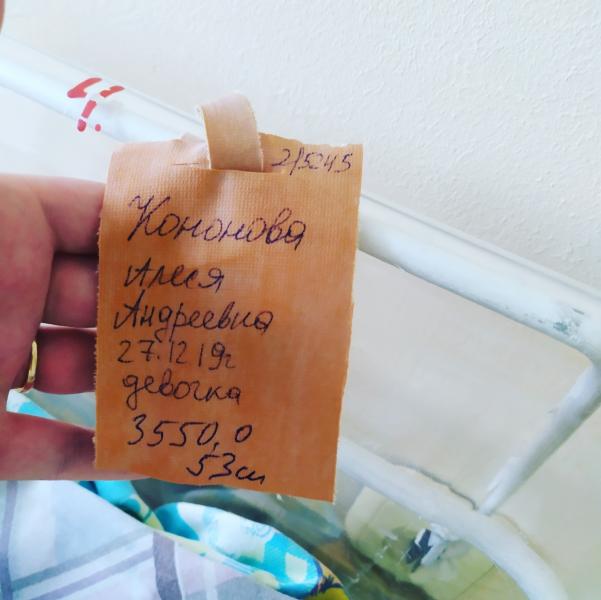 4.
2/5245
Кононова
Алеся
Андреевна
27.12 19г
девочка
3550,0
53см